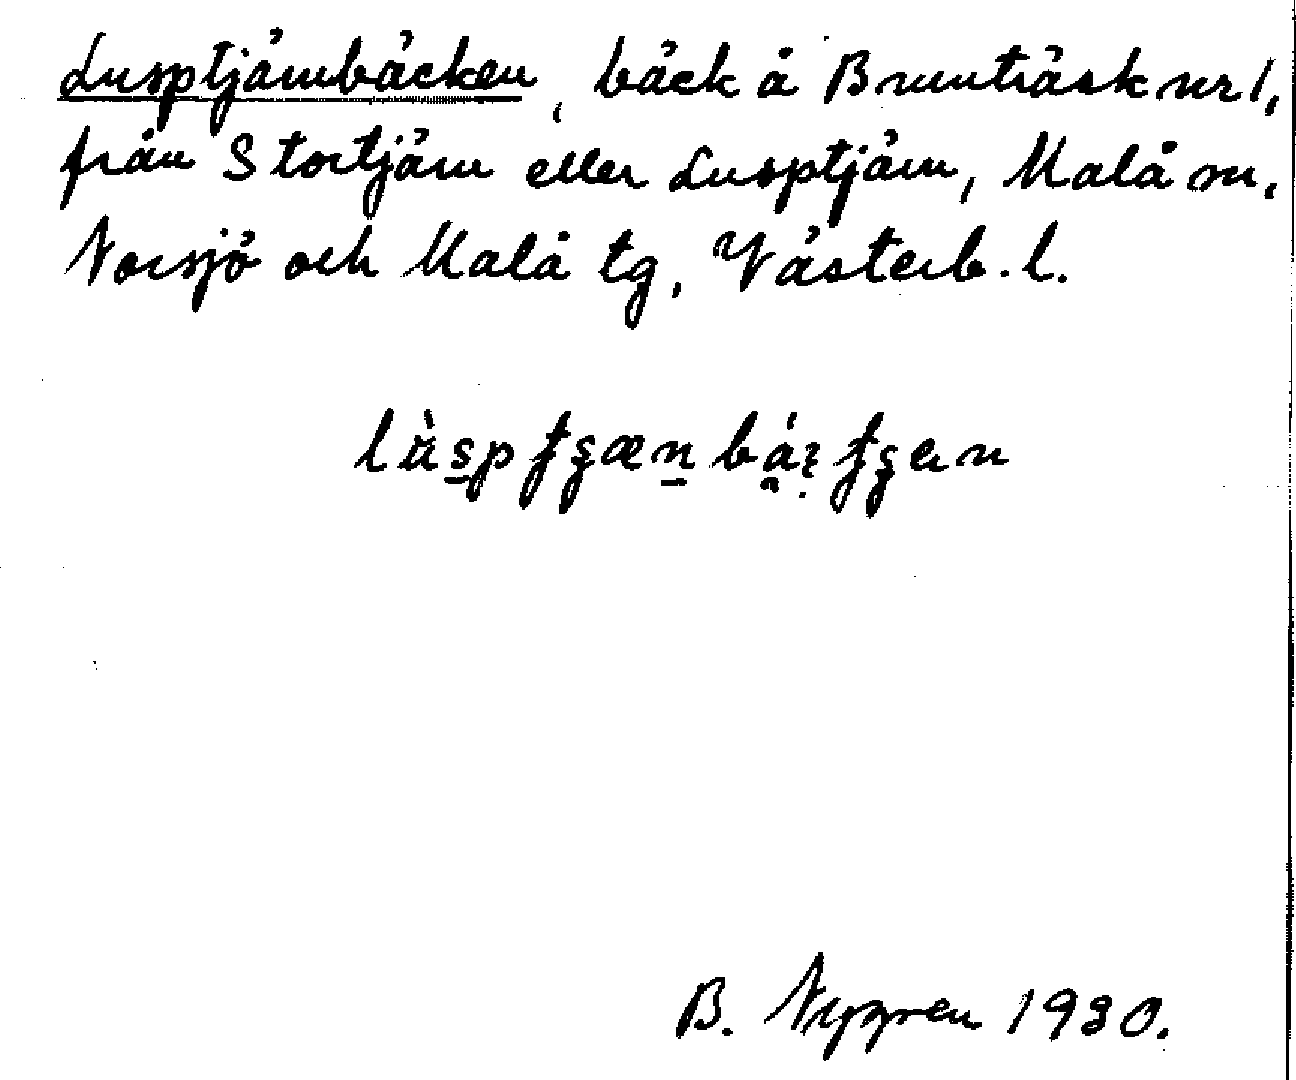 Lusptjärnbäcken, bäck å Brunträsk nr 1,
från Stortjärn eller Lusptjärn, Malå sn,
Norsjö och Malå tg, Västerb. l.
B. Nygren 1930.